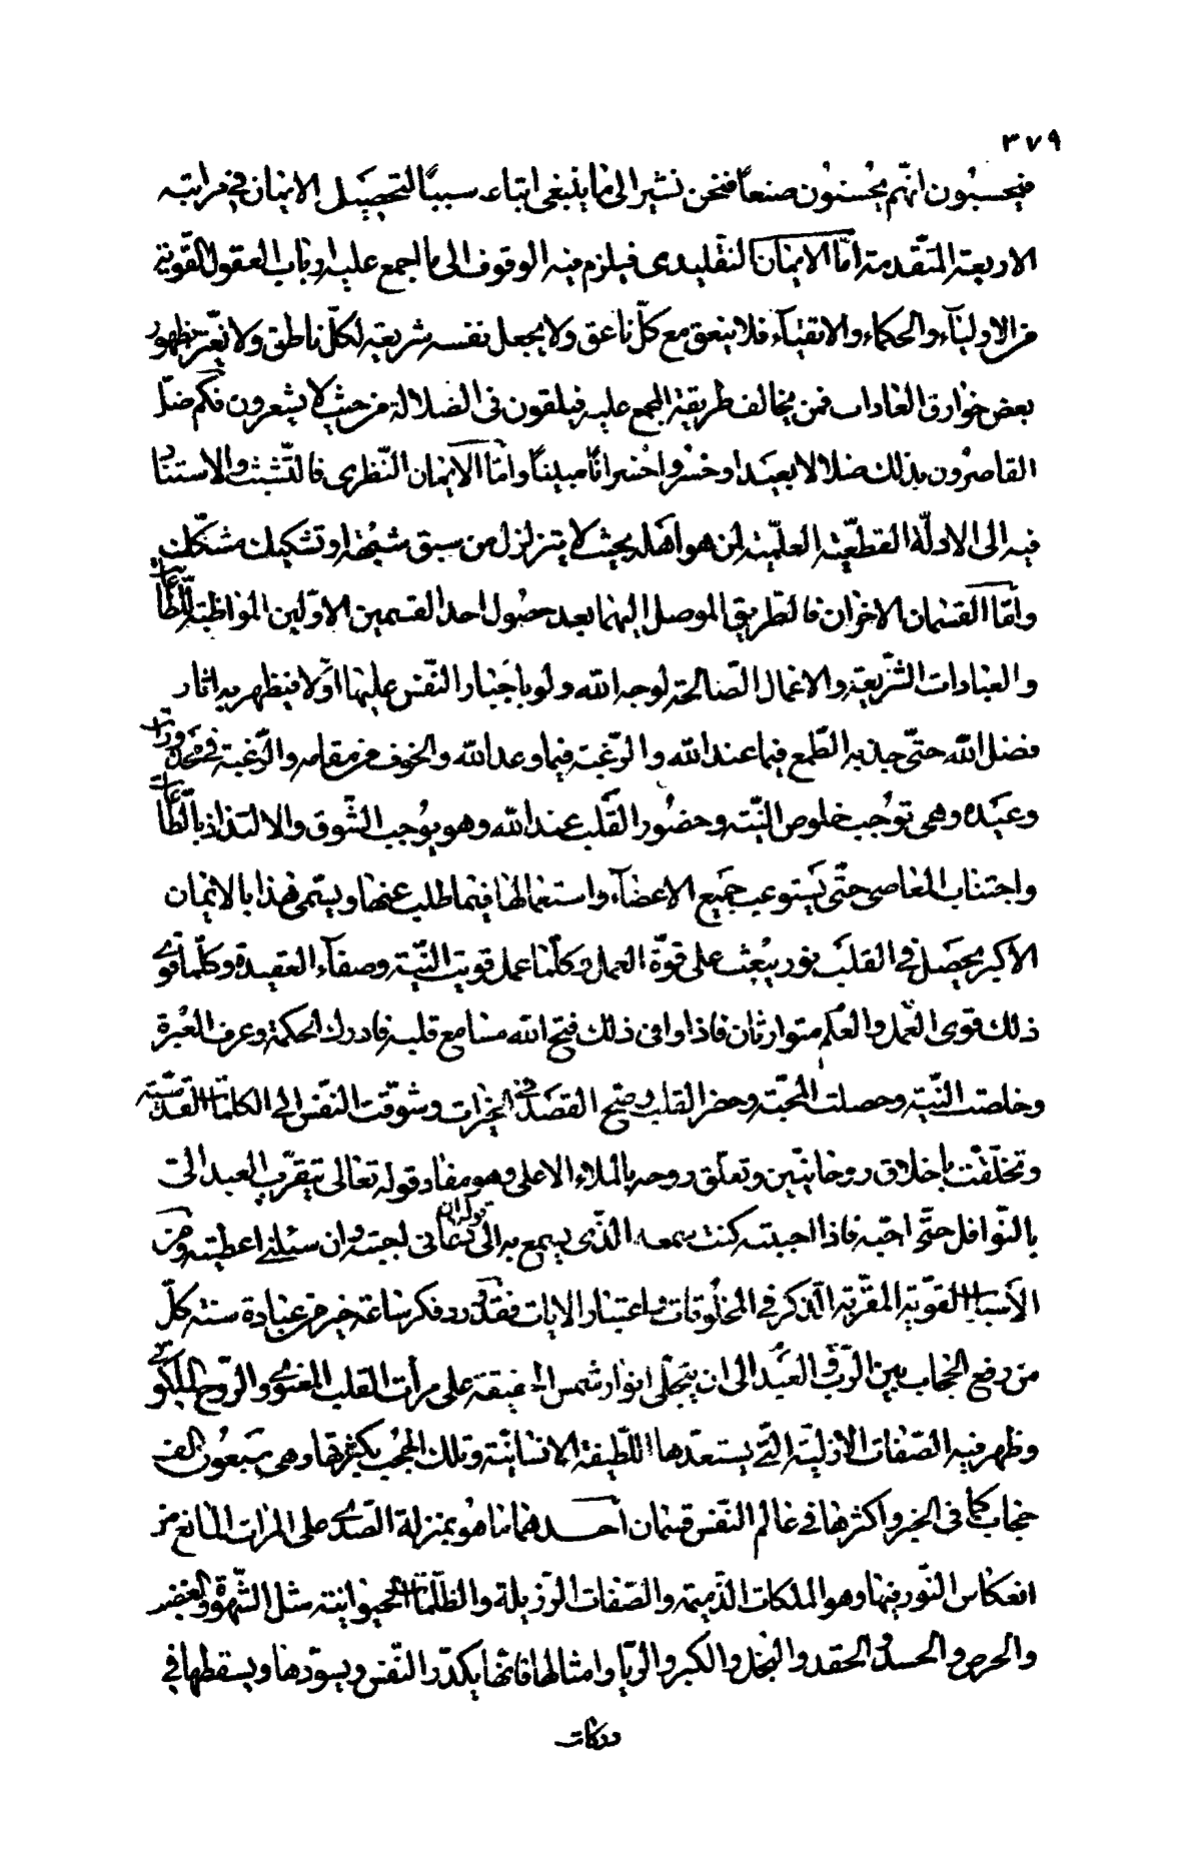 ٣٧٩
فيحسبون انهم يحسنون صنعاً فنحن نشير الى ما ينبغى اتباء سبباً لتحصيل الايمان فى مراتبه
الاربعة المتقدمة امّا الايمان التقليدى فيلزم فيه الوقوف الى ما اجمع عليه ارباب العقول القويّة
من الاولياء والحكماء والاتقياء فلا ينعق مع كلّ ناعق ولا يجعل نفسه شريعة لكلّ ناطق ولا يغترّ بظهور
بعض خوارق العادات فمن يخالف طريقة المجمع عليه فيلقون فى الضلالة من حيث لا يشعرون فكم ضلّ
القاصرون بذلك ضلالا بعيدا وخسروا خسرانا مبيناً وامّا الايمان النّظرى فالتّشبث والاستناد
فيه الى الادلّة القطعيّة العلميّة لمن هو اهله بحيث لا يتزلزل من سبق شبهة او تشكيك مشكّك
وامّا القسمان الاخران فالطّريق الموصل اليهما بعد حصول احد القسمين الاوّلين المواظبة للطّاعات
والعبادات الشّرعية والاعمال الصّالحة لوجه الله ولو باجبار النّفس عليها اوّلا فيظهر به اثار
فضل الله حتّى جذبه الطّمع فيما عند الله والرّغبة فيما وعد الله والخوف من مقامه والرّغبة فى
وعيده وهى توجب خلوص النيّة وحضور القلب عند الله وهو يوجب الشّوق والالتذاذ بالطّاعات
واجتناب المعاصى حتّى يستوعب جميع الاعضاء واستعمالها فيما طلب عنها ويسمّى هذا بالايمان
الاكبر يحصل فى القلب نور يبعث على قوّة العمل وكلّما عمل قويت النيّة وصفاء العقيدة وكلّما قوى
ذلك قوى العمل والعلم متوارثان فاذا وافى ذلك فتح الله مسامع قلبه فادرك الحكمة وعرف العبرة
وخلصت النيّة وحصلت المحبّة وحضر القلب وصحّ القصد فى الخيرات وشوّقت النفس الى الكلمات القدسيّة
وتخلّقت باخلاق روحانيّين وتعلّق روحه بالملاء الاعلى وهو مفاد قوله تعالى يتقرّب العبد الىّ
بالنّوافل حتّى احبّه فاذا احببته كنت سمعه الّذى يسمع به الى قوله ان دعانى اجبته وان سئلنى اعطيته ومن
الاسباب القويّة المقرّبة الذكر فى المخلوقات واعتبار الايات فقد ورد فكر ساعة خير من عبادة سنة كلّ
من رفع الحجاب بين الرّب والعبد الى ان يتجلّى انوار شمس الحقيقة على مرأت القلب المعنوى والرّوح الملكوتى
وظهر فيه الصّفات الازليّة الّتى يستعدّها اللّطيفة الانسانيّة وتلك الحجب بكثرتها وهى سبعون الف
حجاب كما فى الخبر واكثرها فى عالم النّفس قسمان احدهما ما هو بمنزلة الصّدى على المرات المانع من
انعكاس النّور فيها وهو الملكات الذّميمة والصّفات الرّزيلة والظّلمات الحيوانيّة مثل الشّهوة والغضب
والحرص والحسد والحقد والبخل والكبر والريّا وامثالها فانّها يكدّر النّفس ويسوّدها ويسقطها فى
دركات